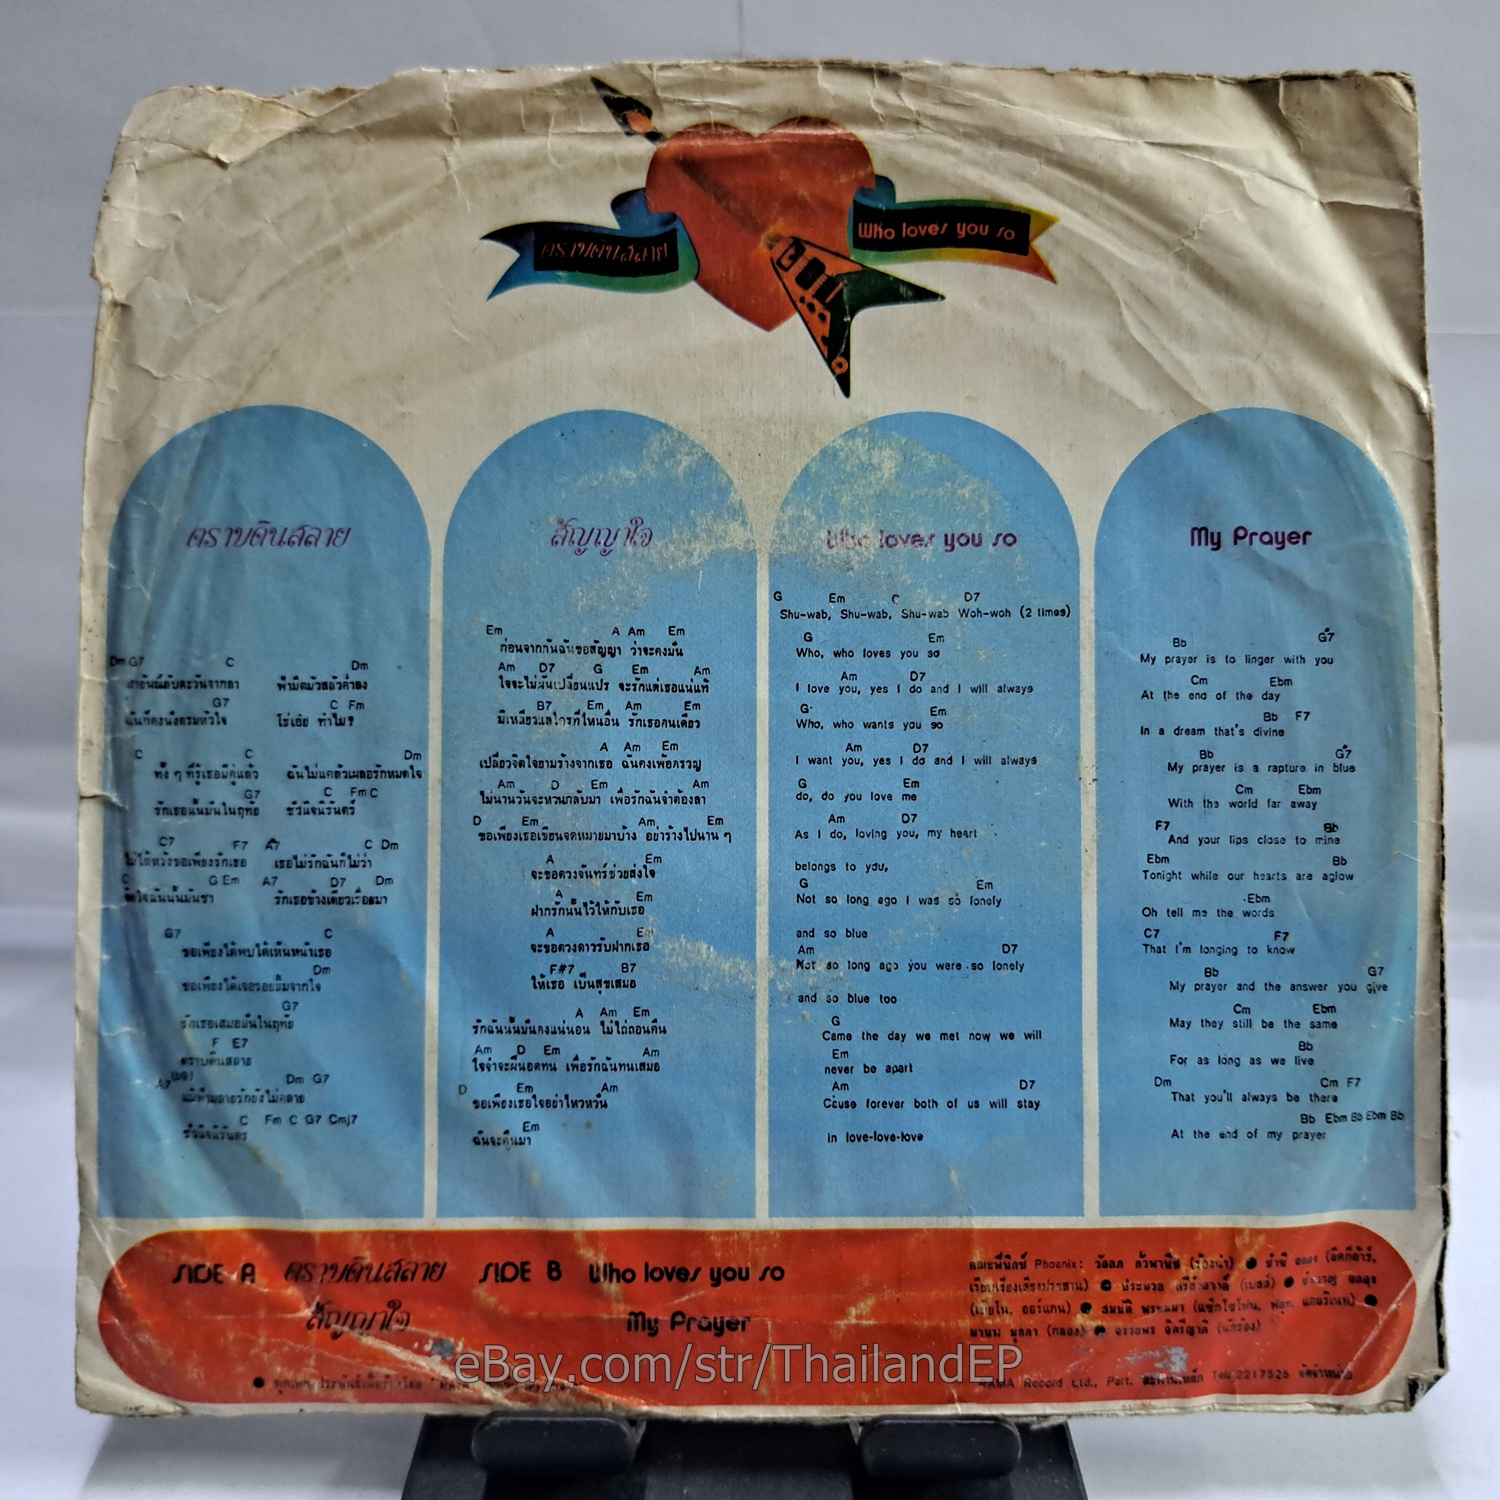 ตราบดินสลาย
Who loves you so
ตราบดินสลาย
Dm G7 C Dm
สายัณห์ลับตะวันจากลา ฟ้ามืดมัวสลัวค่ำลง
G7 C Fm
ฉันก็คงนั่งตรมหัวใจ โธ่เอ๋ย ทำไม?
C C Dm
ทั้ง ๆ ที่รู้เธอมีคู่แล้ว ฉันไม่แคล้วเผลอรักหมดใจ
G7 C Fm C
รักเธอนั้นมั่นในฤทัย ชั่วนิจนิรันดร์
C7 F7 A7 C Dm
ไม่ได้หวังขอเพียงรักเธอ เธอไม่รักฉันก็ไม่ว่า
C G Em A7 D7 Dm
รักเธอข้างเดียวเรื่อยมา
G7 C
ขอเพียงได้พบได้เห็นหน้าเธอ
Dm
ขอเพียงได้เจอรอยยิ้มจากใจ
G7
รักเธอเสมอมั่นในฤทัย
F E7
ตราบดินสลาย
A7 (b9) Dm G7
แม้ฟ้ามลายรักยังไม่คลาย
C Fm C G7 Cmj7
ชั่วนิจนิรันดร
สัญญาใจ
Em A Am Em
ก่อนจากกันฉันขอสัญญา ว่าจะคงมั่น
Am D7 G Em Am
ใจจะไม่ผันเปลี่ยนแปร จะรักแต่เธอแน่แท้
B7 Em Am Em
มิเหลียวแลใครที่ไหนอื่น รักเธอคนเดียว
A Am Em
เปลี่ยวจิตใจยามร้างจากเธอ ฉันคงเพ้อครวญ
Am D Em Am
ไม่นานวันจะหวนกลับมา เพื่อรักฉันจำต้องลา
D Em Am Em
ขอเพียงเธอเขียนจดหมายมาบ้าง อย่าร้างไปนาน ๆ
A Em
จะขอดวงจันทร์ช่วยส่งใจ
A Em
ฝากรักนั้นไว้ให้กับเธอ
A Em
จะขอดวงดาวรับฝากเธอ
F#7 B7
ให้เธอ เป็นสุขเสมอ
A Am Em
รักฉันนั้นมั่นคงแน่นอน ไม่ไถ่ถอนคืน
Am D Em Am
ใจจำจะฝืนอดทน เพื่อรักฉันทนเสมอ
D Em Am
ขอเพียงเธอใจอย่าไหวหวั่น
Em
ฉันจะคืนมา
Who loves you so
G Em C D7
Shu-wab, Shu-wab, Shu-wab Woh-woh (2 times)
G Em
Who, who loves you so
Am D7
I love you, yes I do and I will always
G Em
Who, who wants you so
Am D7
I want you, yes I do and I will always
G Em
do, do you love me
Am D7
As I do, loving you, my heart
belongs to you,
G Em
Not so long ago I was so lonely
and so blue
Am D7
Not so long ago you were so lonely
and so blue too
G
Came the day we met now we will
Em
never be apart
Am D7
Cause forever both of us will stay
in love-love-love
My Prayer
Bb G7
My prayer is to linger with you
Cm Ebm
At the end of the day
Bb F7
In a dream that's divine
Bb G7
My prayer is a rapture in blue
Cm Ebm
With the world far away
F7 Bb
And your lips close to mine
Ebm Bb
Tonight while our hearts are aglow
Ebm
Oh tell me the words
C7 F7
That I'm longing to know
Bb G7
My prayer and the answer you give
Cm Ebm
May they still be the same
Bb
For as long as we live
Dm Cm F7
That you'll always be there
Bb Ebm Bb Ebm Bb
At the end of my prayer
SIDE A ตราบดินสลาย
สัญญาใจ
SIDE B Who loves you so
My Prayer
คณะฟีนิกซ์ Phoenix: วัลลภ (ร้องนำ) ● ชำนิ (ลีดกีต้าร์,
เรียบเรียงเสียงประสาน) ● ประมวล (เบสส์) ● ชำนาญ
(เปียโน, ออร์แกน) ● สมบัติ พรหมมา (แซ็กโซโฟน, ฟลุท, แคลริเนท) ●
มานพ มุกดา (กลอง) ● อรวยพร (นักร้อง)
RAMA Record Ltd., Part. สะพานเหล็ก Tel. 2217525 จัดจำหน่าย
eBay.com/str/ThailandEP